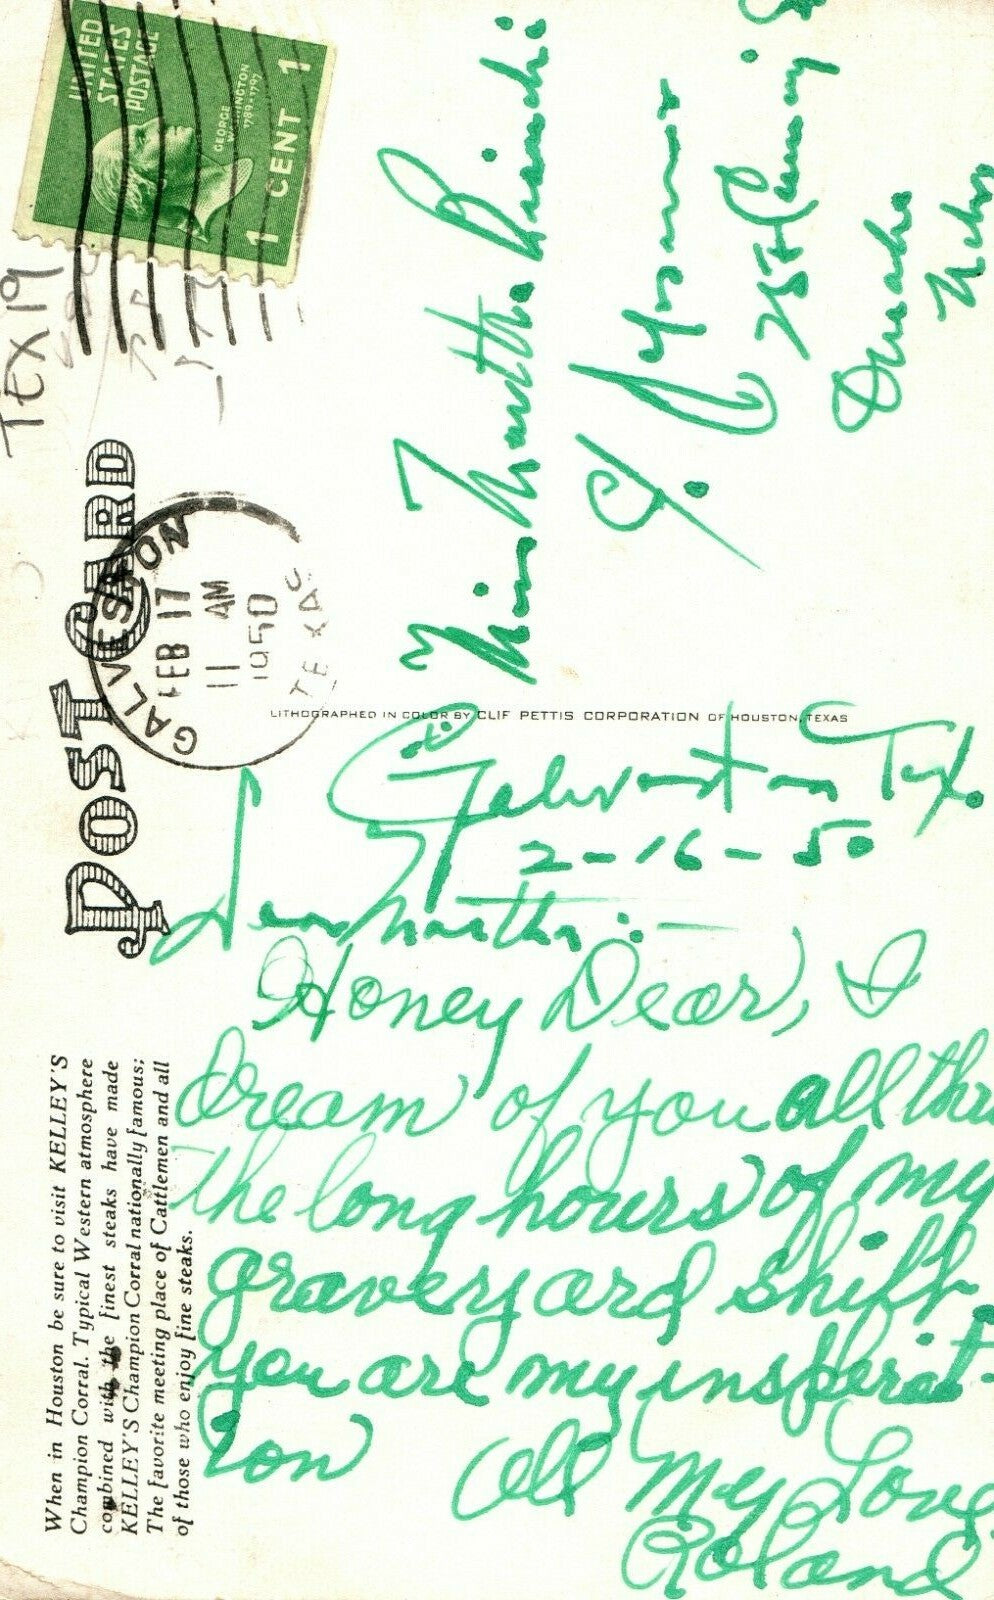 UNITED
STATES
POSTAGE
GEORGE
WASHINGTON
1789-1797
1 CENT 1
TEX 19
POST CARD
GALVESTON
FEB 17
11 AM
1950
TEXAS
When in Houston be sure to visit KELLEY'S
Champion Corral. Typical Western atmosphere
combined with the finest steaks have made
KELLEY'S Champion Corral nationally famous;
The favorite meeting place of Cattlemen and all
of those who enjoy fine steaks.
LITHOGRAPHED IN COLOR BY CLIF PETTIS CORPORATION OF HOUSTON, TEXAS
Galveston Tex.
2-16-50
Dear Martha:
Honey Dear, I
dream of you all thru
the long hours of my
graveyard shift.
you are my insperat-
ion
All My Love
Roland
Miss Martha
Omaha
Nebr